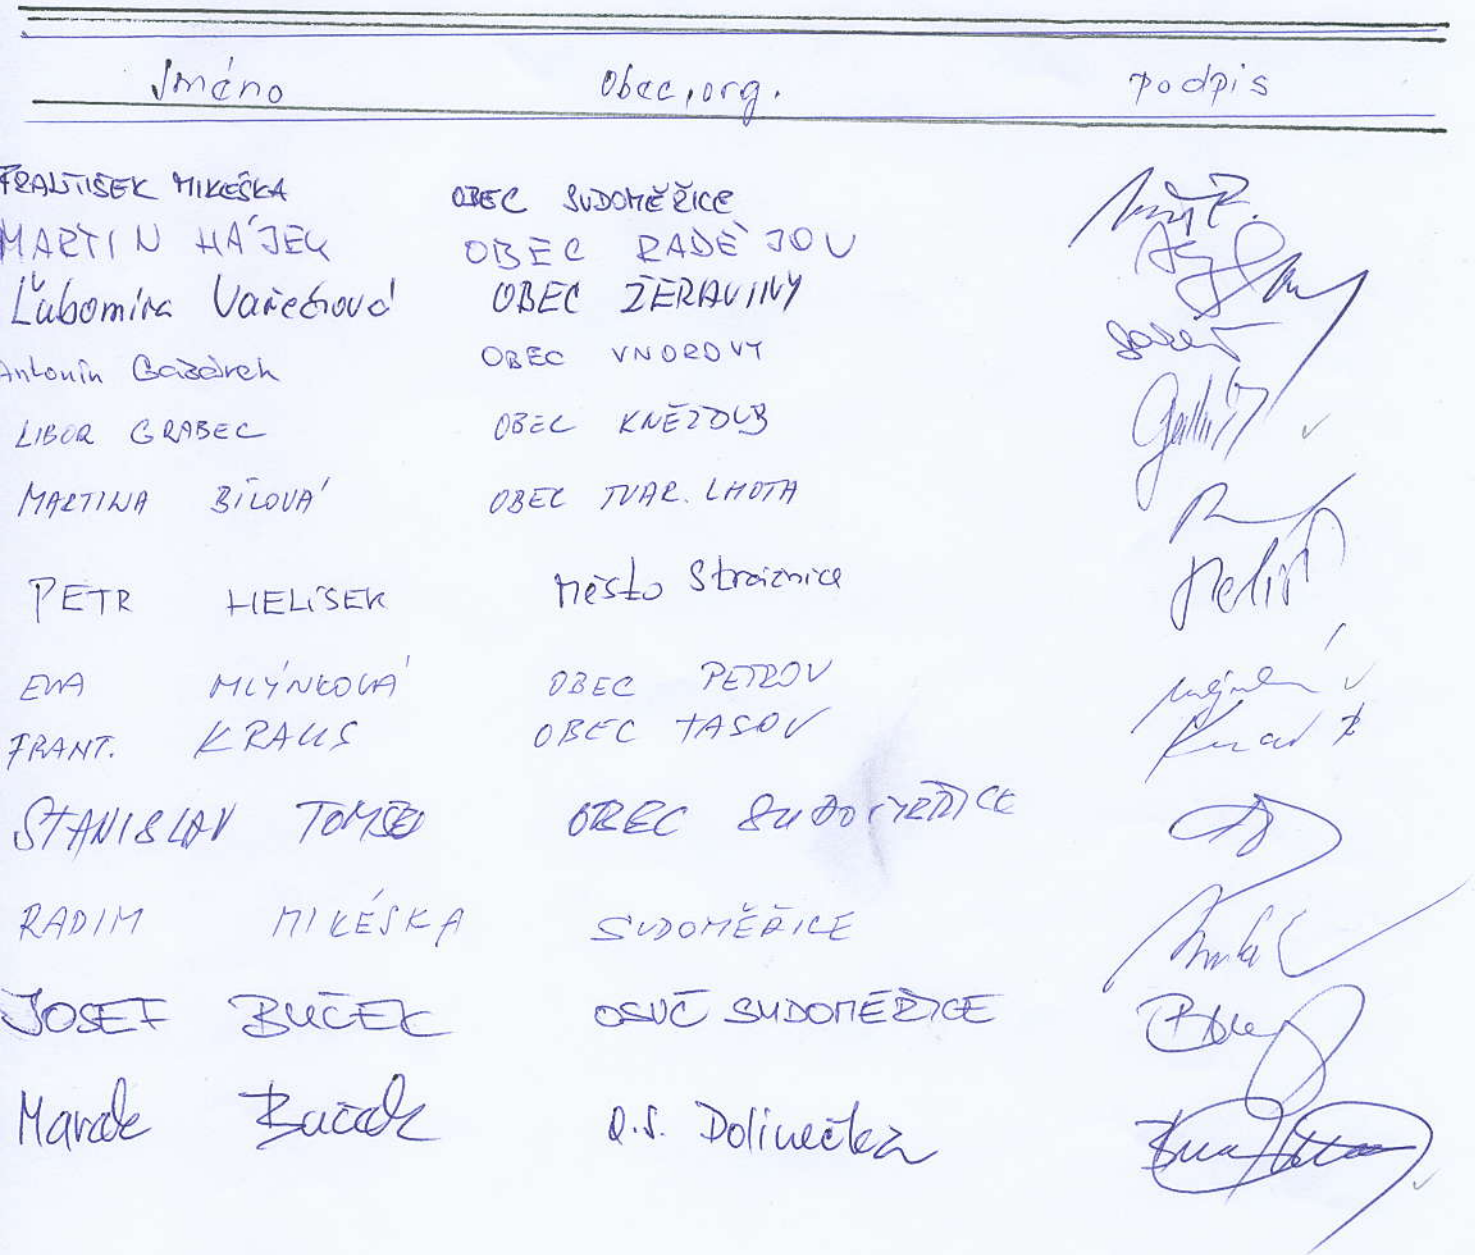 Jméno Obec, org. Podpis
FRANTIŠEK MIKEŠKA OBEC SUDOMĚŘICE
MARTIN HÁJEK OBEC RADĚJOV
Ľubomíra Vařechová OBEC ŽERAVINY
Antonín Gazárek OBEC VNOROVY
LIBOR GRABEC OBEC KNĚŽDUB
MARTINA BÍLOVÁ OBEC TVAR. LHOTA
PETR HELÍSEK Město Strážnice
EVA MLÝNKOVÁ OBEC PETROV
FRANT. KRAUS OBEC TASOV
STANISLAV OBEC SUDOMĚŘICE
RADIM MIKÉSKA SUDOMĚŘICE
JOSEF BUČEK OSVČ SUDOMĚŘICE
Marek Buček O.S. Dolinečka